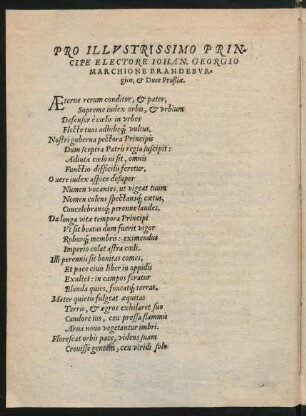 PRO ILLVSTRISSIMO PRIN-
CIPE ELECTORE IOHAN. GEORGIO
MARCHIONE BRANDEBVR-
gico, & Duce Prussiæ.
Æterne rerum conditor, & pater,
Supreme index orbis, & vrbium
Defensor è cœlo in vrbes
Flecte tuos adhibeq; vultus,
Nostri guberna pectora Principis
Dum sceptra Patris regia suscipit:
Adiuta cœlo ni sit, omnis
Functio difficilis feretur,
O vere iudex aspice desuper
Numen vocantes, ut vigeat tuum
Nomen colens spectansq; cœtus,
Concelebransq; perenne laudes.
Da longa vitæ tempora Principi
Vt sit beatus dum fuerit vigor
Roburq; membris: eximendus
Imperio colat astra cœli.
Illi perennis sit bonitas comes,
Et pace ciuis liber in oppidis
Exultet: in campis feratur
Blanda quies, foueatq; terras,
Mater quietis fulgeat æquitas
Terris, & ægros exhilaret suo
Candore ius, ceu pressa flammis
Arua nouo vegetantur imbri.
Florescat orbis pace, videns suam
Creuisse gentem, ceu viridi solo